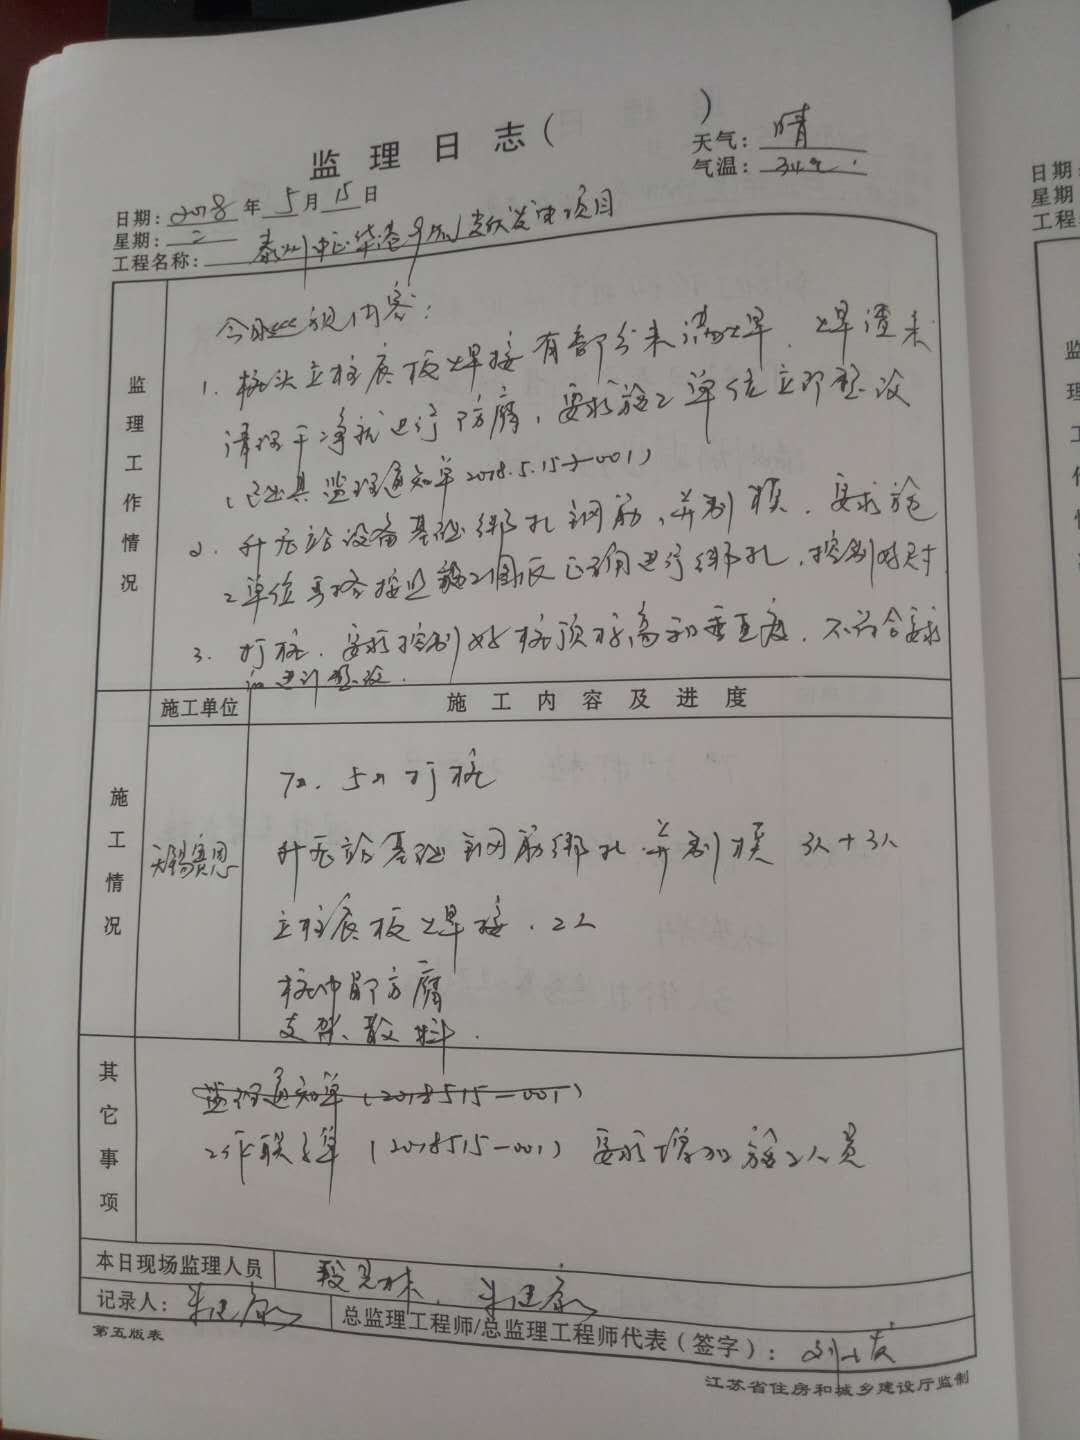 监理日志( )
天气: 晴
气温: 34℃
日期: 2018年5月15日
星期: 二
工程名称: 泰州中正华港 发电项目
监理工作情况
今日巡视内容:
1. 桩头立柱底板焊接有部分未满焊、焊渣未
清理干净就进行防腐,要求施工单位立即整改
(已出具监理通知单2018.5.15-001)
2. 升压站设备基础绑扎钢筋,并制模,要求施
工单位严格按照施工图纸正确进行绑扎,控制好尺寸
3. 打桩,要求控制好桩顶标高和垂直度,不符合要求
的进行整改.
施工单位 施工内容及进度
施工情况
无锡赛恩
7#、5# 打桩
升压站基础钢筋绑扎并制模 3人+3人
立柱底板焊接. 2人
桩中部防腐
支架、散料.
其它事项
监理通知单(2018515-001)
工作联系单(2018515-001)要求增加施工人员
本日现场监理人员 朱建康
记录人: 朱建康
总监理工程师/总监理工程师代表(签字):
第五版表
江苏省住房和城乡建设厅监制
日期:
星期:
工程
监
理
工
作